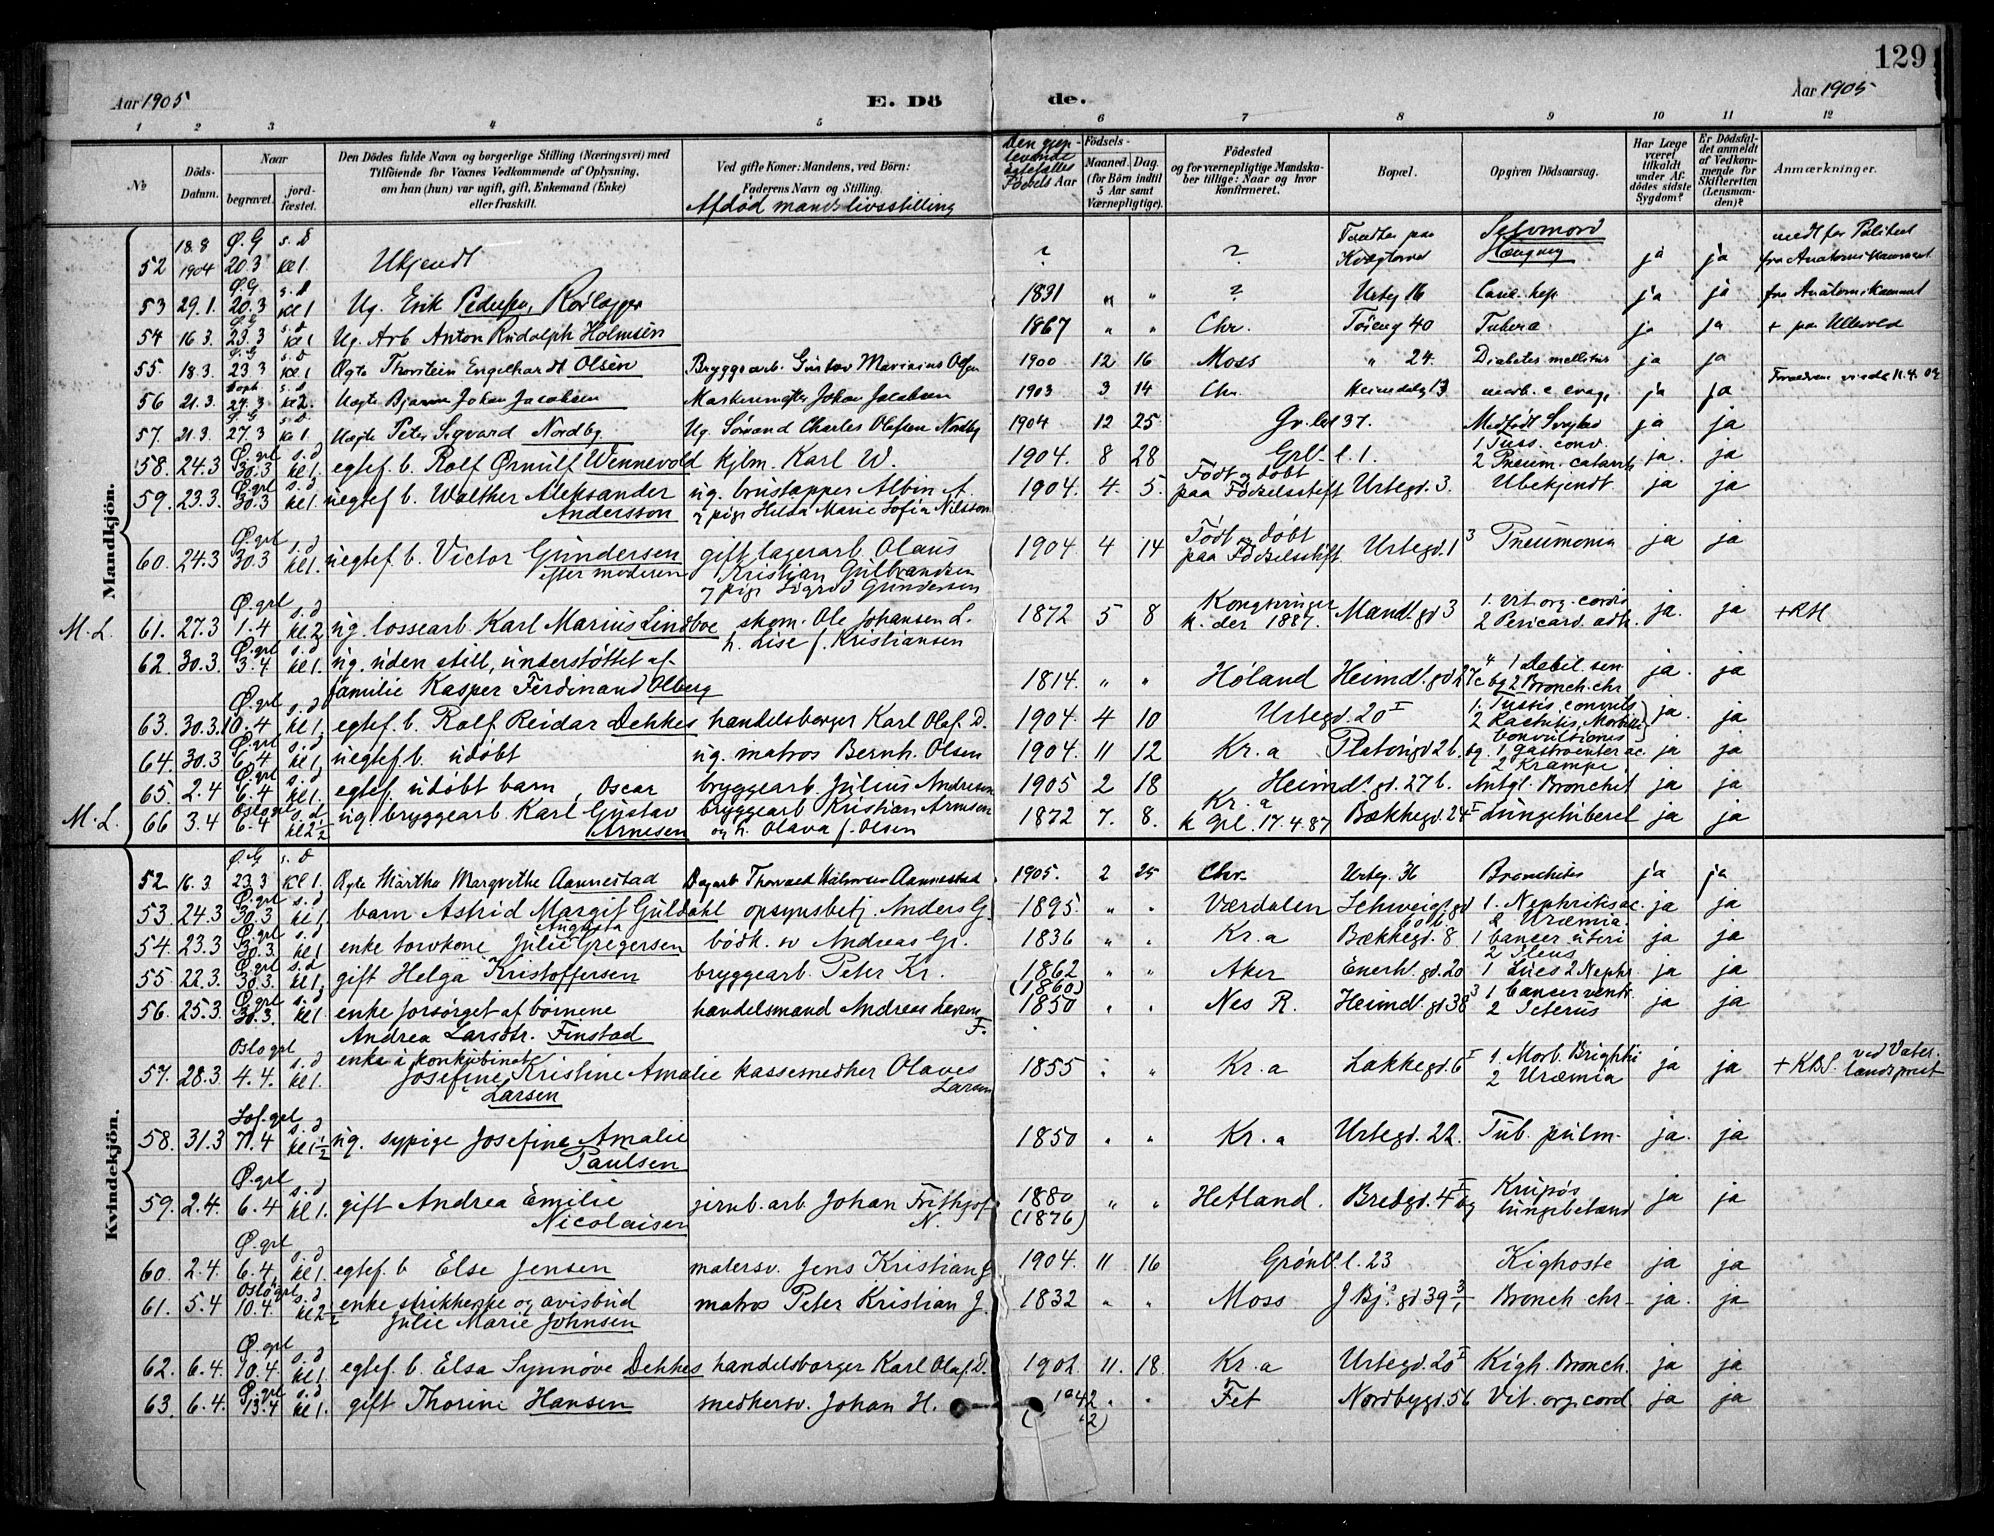 129
Aar 1905
E. Dö
de.
Aar 1905
1 2 3 4 5 6 7 8 9 10 11 12
No
Döds-Datum.
Naar
begravet.
jordfæstet.
Den Dödes fulde Navn og borgerlige Stilling (Næringsvei) med
Tilföiende for Voxnes Vedkommende af Oplysning,
om han (hun) var ugift, gift, Enkemand (Enke)
eller fraskilt.
Ved gifte Koner: Mandens, ved Börn:
Faderens Navn og Stilling.
Afdød mands livsstilling
Den gjenlevende ægtefælles Fødsels Aar
Födsels-
Maaned. Dag.
(for Börn indtil 5 Aar samt Værnepligtige).
Födested
og for værnepligtige Mandskaber tillige: Naar og hvor konfirmeret.
Bopæl.
Opgiven Dödsaarsag.
Har Læge været tilkaldt under Afdödes sidste Sygdom?
Er Dödsfaldet anmeldt af Vedkommende for Skifteretten (Lensmanden)?
Anmærkninger.
Mandkjön.
52 18.8 1904 Ø.G 20.3 s.D kl 1. Ukjendt ? ? Kvægtorvet Selvmord Hængning ja ja fra Anatomikammeret
53 29.1. Ø.G 20.3 s.D kl 1 Ug. Erik Pedersen, Rørlægger 1831 " " ? Urteg 16 ja ja fra Anatomikammeret
54 16.3. Ø.G 23.3 s.d kl 1 Ug. Arb Anton Rudolph Holmsen 1867 " " Chr. Tøieng 40 Tuberc. ja ja + paa Ullevold
55. 18.3. Ø.G 23.3 s.D kl 1 Ægte Thorstein Engelhardt Olsen Bryggearb. Gustav Marinius Olsen 1900 12 16 Moss " 24. Diabetes mellitus ja ja
56 21.3. 24.3 s.d kl 2. Uægte Bjarne Johan Jacobsen Maskinmester Johan Jacobsen 1903 3 14 Chr. Heimdalg 13 ja ja
57. 21.3. Ø.G 27.3 s.d kl 1 Uægte Peter Sigvard Nordby Ug. Sømand Charles Olafsen Nordby 1904 12 25 Gr. ler 37. Medfødt Svaghed ja ja
58. 24.3 Ø.grl 30.3 s.d kl 1. egtef. b. Rolf Ørnulf Wennevold kjlm. Karl W. 1904. 8 28 Grl. l. 1. 1 Tuss. conv. 2 Pneum. catarrh ja. ja
59. 23.3. Ø.grl 30.3 s.d kl 1. uegtef b. Walther Aleksander Andersson ug. brustapper Albin A. og pige Hilda Marie Sofia Nilsson 1904. 4. 5. Født og døbt paa Fødselsstift Urtegd. 3. Ubekjendt ja ja
60. 24.3 Ø.grl 30.3 s.d kl 1. uegtef b. Victor Gundersen efter moderen gift lagerarb. Olaus Kristian Gulbrandsen og pige Sigrid Gundersen 1904 4 14 Født og døbt paa Fødselsstift Urtegd. 13 Pneumonia ja ja
M. L. 61. 27.3 Ø.grl 1.4 s.d kl. 2 ug. lossearb. Karl Marius Lindboe skom. Ole Johansen L. h. Lise f. Kristiansen 1872 5 8 Kongsvinger k. der 1887. Mandl. gd 3 1. vit. org. cordis 2 Pericard. adh. ja. ja + RH
62. 30.3. Ø.grl 3.4 s.d kl 1. ug. uden still, understøttet af familie Kasper Ferdinand Olberg 1814. " " Høland Heimdl. gd 27 1 Debil. sen. 2 Bronch. chr ja. ja
63. 30.3. Ø.grl 6.4 s.d kl 1. egtef. b. Rolf Reidar Dehkes handelsborger Karl Olaf D. 1904. 4 10 Urtegd. 20 I 1. Tussis convuls 2 Rachitis, Morbilli Convultiones ja. ja
64. 30.3 Ø.grl 6.4 s.d kl 1. uegtef. b. udøbt ug. matros Bernh. Olsen 1904. 11 12 Kr.a Platousgd 2 b. 1 gastroenter ac. 2 Krampe ja ja
65. 2.4 Ø.grl 6.4 s.d kl 1. egtef. udøbt barn, Oscar bryggearb. Julius Andresen 1905 2 18 Heimdl. gd. 27 b. Antgl. Bronchit ja ja
M. L. 66 3.4 Oslo grl 6.4 s.d. kl 2½ ug. bryggearb. Karl Gustav Arnesen bryggearb Kristian Arnesen og h. Olava f. Olsen 1872 7. 8. Kr.a k Grl. 17.4.87 Bækkegd. 24 I Lungetuberkl ja ja
Kvindekjön.
52 16.3 Ø.G 23.3 s.D kl 1. Ægte Martha Margrethe Aannestad Dagarb Thorvald Halvorsen Aannestad 1905. 2 25 Chr. Urteg. 36 Bronchites ja ja
53. 24.3 Ø.grl 30.3 s.d kl 1 barn Astrid Margit Guldahl opsynsbetj. Anders G. 1895. " " Værdalen Schweigl. gd 1. Nephritis ac. 2 Uræmia. ja ja
54. 23.3 Ø.grl 30.3. s.d kl 1 enke torvkone Julie Augusta Gregersen bødk. sv Andreas Gr. 1836 " " Kr.a Bækkegd. 8 1 Cancer uteri 2 Ileus ja ja
55 22.3. Ø.grl 30.3. s.d kl 1. gift Helga Kristoffersen bryggearb. Peter Kr. 1862 (1860) " " Aker Enerh. gd. 20 1 Lues 2 Nephr. ja ja
56. 25.3. Ø.grl 30.3. s.d kl 1. enke forsørget af børnene Andrea Larsdtr. Finstad handelsmand Andreas Larsen F. 1850 " " Nes R. Heimdl. gd 38 3 1 Cancer ventr. 2 Icterus ja ja
57. 28.3. Oslo grl 4.4. s.d kl 1. enke i konkubinat Josefine Kristine Amalie Larsen kassesnedker Olaves Larsen 1855 " " Kr.a Lakkegd. 6 I 1. Morb. Brightii 2 Uræmia ja ja + KBS. ved Vaterlands prest
58. 31.3 Sof. grl 7.4 s.d kl 1½ ug. sypige Josefine Amalie Paulsen 1850 " " Kr.a Urtegd. 22. Tub. pulm. ja. ja
59. 2.4. Ø.grl 6.4 s.d kl 1. gift Andrea Emilie Nicolaisen jernb. arb. Johan Frithjof N. 1880 (1876) " " Hetland. Bredgd. 4 Krupøs lungebetænd ja ja
60. 2.4. Ø.grl 6.4 s.d kl 1. egtef. b Else Jensen malersv. Jens Kristian J 1904. 11 16 Grønl. l. 23 Kighoste ja ja
61. 5.4 Oslo grl 10.4. s.d kl 2½ enke strikkerske og avisbud Julie Marie Johnsen matros Peter Kristian J. 1832 " " Moss J Bj. gd 39 Bronch chr. ja. ja
62. 6.4. Ø.grl 10.4 s.d kl 1. egtef. b. Elsa Synnøve Dehkes handelsborger Karl Olaf. D. 1902 11. 18. Kr.a Urtegd. 20 I Kigh. Bronch. ja ja
63. 6.4. Ø.grl 13.4 s.d kl 1. gift Thorine Hansen snedkersv. Johan H. " " Fet Nordbygd. 56 Vit. org. cord ja ja